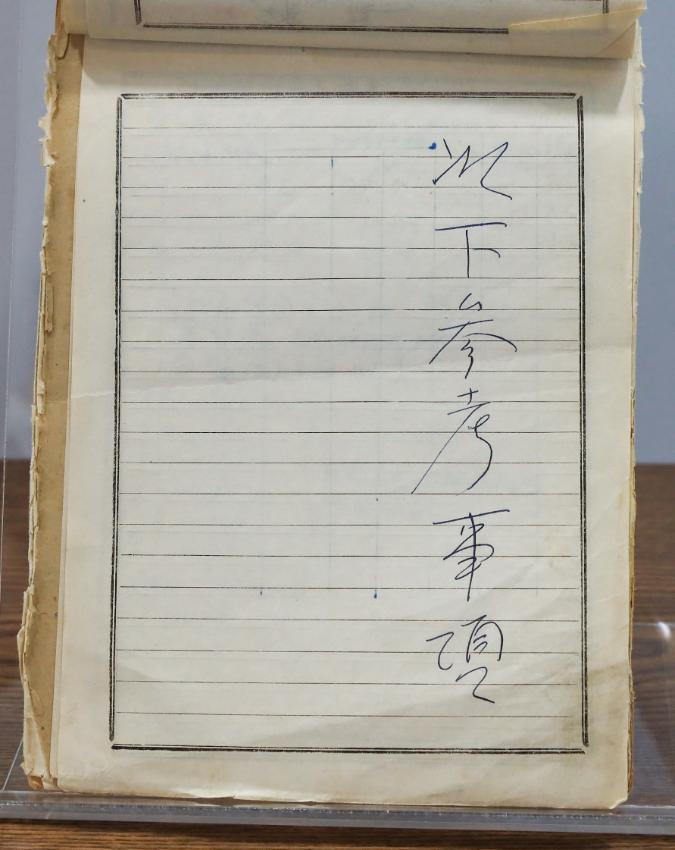 以下参考事項